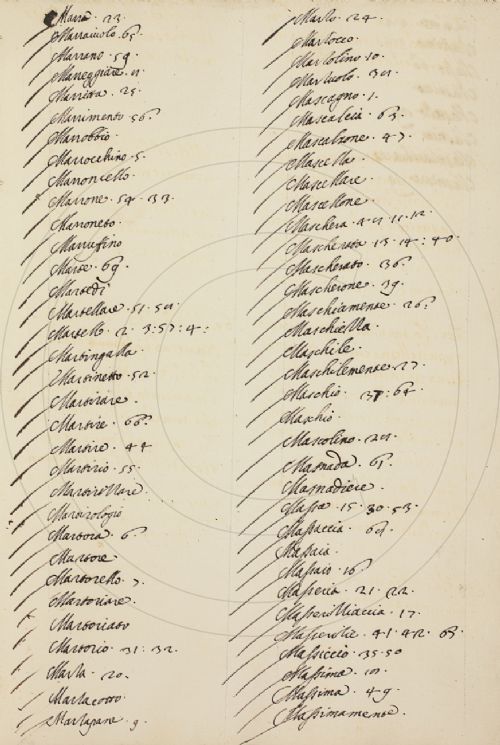 Marra . 23.
Marraiuolo . 65.
Marrano . 59.
Maneggiare . 11.
Marrita . 25.
Marrimento . 56.
Marrobbio .
Marrocchino . 5.
Marroncello .
Marrone . 54 . 33.
Marroneto .
Marrussino
Marte . 69.
Martedì
Martellare . 51 . 50.
Martello . 2 . 3:57:4:
Martingalla .
Martinetto . 52.
Martirare .
Martire . 66.
Martire . 44
Martirio . 55.
Martirizzare .
Martirologio
Martora . 6.
Martore
Martorello . 7.
Martoriare .
Martoriato
Martorio . 31 : 32.
Marza . 20.
Marzacotto .
Marzapane . 9.
Marzo . 24.
Marzocco
Marzolino . 10.
Marzuolo . 30.
Mascagno . 1.
Mascalcia . 63.
Mascalzone . 47.
Mascella .
Mascellare .
Mascellone .
Maschera . 11 . 12.
Mascherata . 13 . 14 : 40.
Mascherato . 36.
Mascherone . 39.
Maschiamente . 26.
Maschiezza .
Maschile .
Maschilemente . 27.
Maschio . 37 : 64.
Maschio .
Mascolino . 20.
Masnada . 61.
Masnadiere .
Massa . 15 . 30 . 53.
Massaccia . 64.
Massaia .
Massaio . 16
Masseria . 21 . 22.
Masseriziaccia . 17.
Masserizie . 41 . 42 . 68.
Massiccio . 35 . 50
Massima . 10.
Massima . 49.
Massimamente .